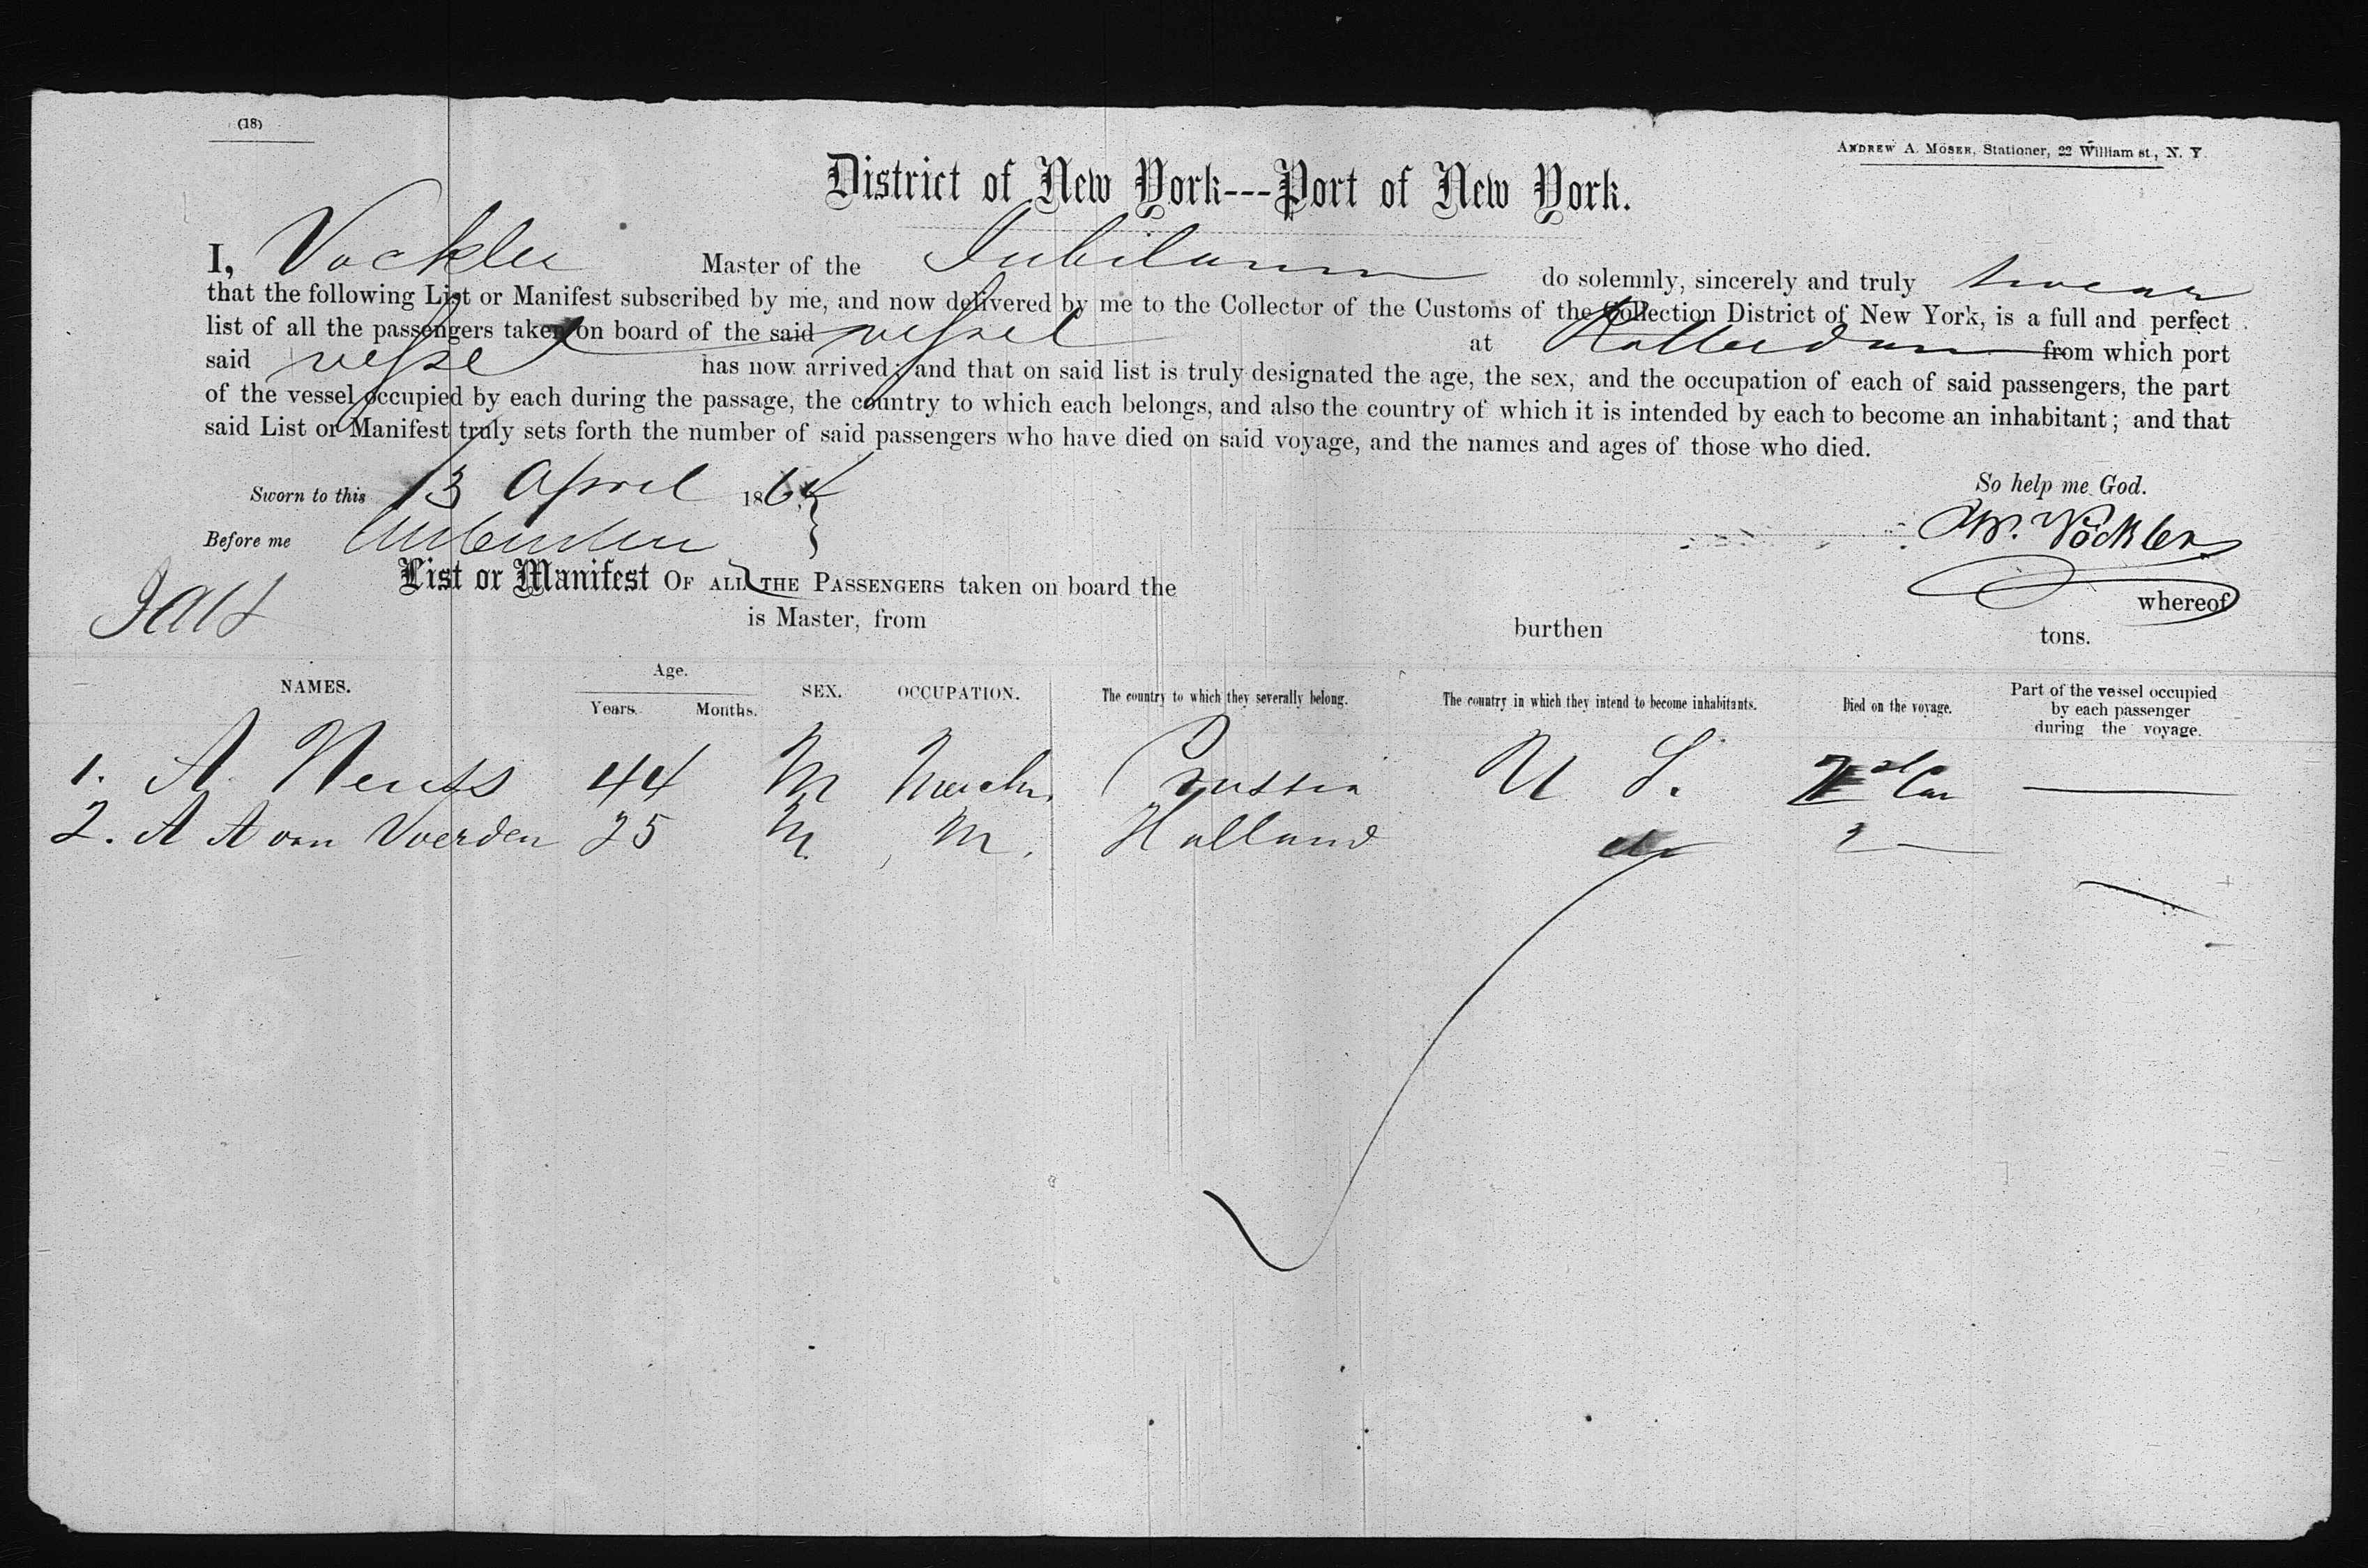 (18)
ANDREW A. MOSER, Stationer, 22 William st., N. Y.
District of New York---Port of New York.
I, Vockler Master of the Jubilaum do solemnly, sincerely and truly swear
that the following List or Manifest subscribed by me, and now delivered by me to the Collector of the Customs of the Collection District of New York, is a full and perfect
list of all the passengers taken on board of the said vessel at Rotterdam from which port
said vessel has now arrived; and that on said list is truly designated the age, the sex, and the occupation of each of said passengers, the part
of the vessel occupied by each during the passage, the country to which each belongs, and also the country of which it is intended by each to become an inhabitant; and that
said List or Manifest truly sets forth the number of said passengers who have died on said voyage, and the names and ages of those who died.
So help me God.
Sworn to this 13 April 1864
W. Vöckler
Before me
List or Manifest OF ALL THE PASSENGERS taken on board the whereof
is Master, from burthen tons.
NAMES. Age. Years. Months. SEX. OCCUPATION. The country to which they severally belong. The country in which they intend to become inhabitants. Died on the voyage. Part of the vessel occupied by each passenger during the voyage.
1. A Neuss 44 M Mech. Prussia U S.
2. A A van Voerden 25 M. M. Holland do 2